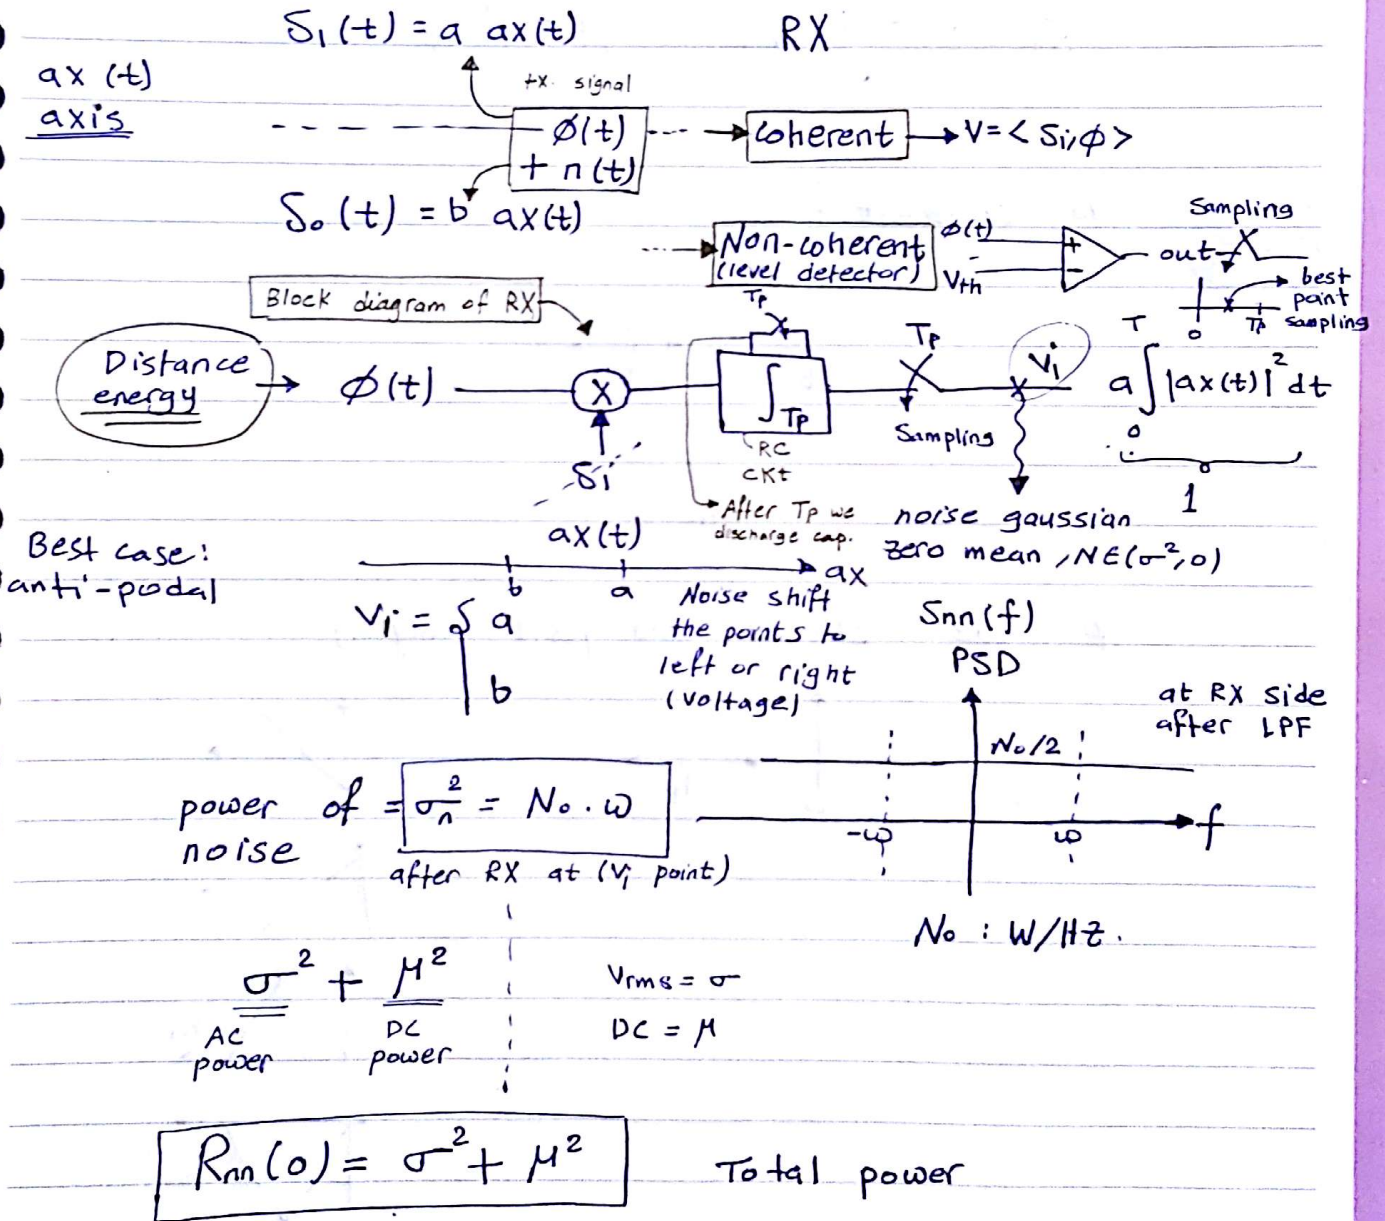 S₁(t) = a ax(t)
RX
ax(t)
axis
tx. signal
ø(t)
+ n(t)
coherent
V = < Si, ø >
S₀(t) = b ax(t)
Non-coherent
(level detector)
ø(t)
Vth
+
-
out
Sampling
best
point
sampling
0
Tp
Block diagram of RX
Distance
energy
ø(t)
X
Si
ax(t)
Tp
∫Tp
RC
CKt
After Tp we
discharge cap.
Tp
Sampling
Vi
a ∫₀ᵀ |ax(t)|² dt
1
noise gaussian
zero mean, NE(σ², 0)
Best case:
anti-podal
b
a
ax
Vi = { a
b
Noise shift
the points to
left or right
(voltage)
Snn(f)
PSD
at RX side
after LPF
N₀/2
-ω
ω
f
power of = σn² = N₀ . ω
noise
after RX at (Vi point)
N₀ : W/HZ.
σ² + μ²
AC
power
DC
power
Vrms = σ
DC = μ
Rnn(0) = σ² + μ²
Total power